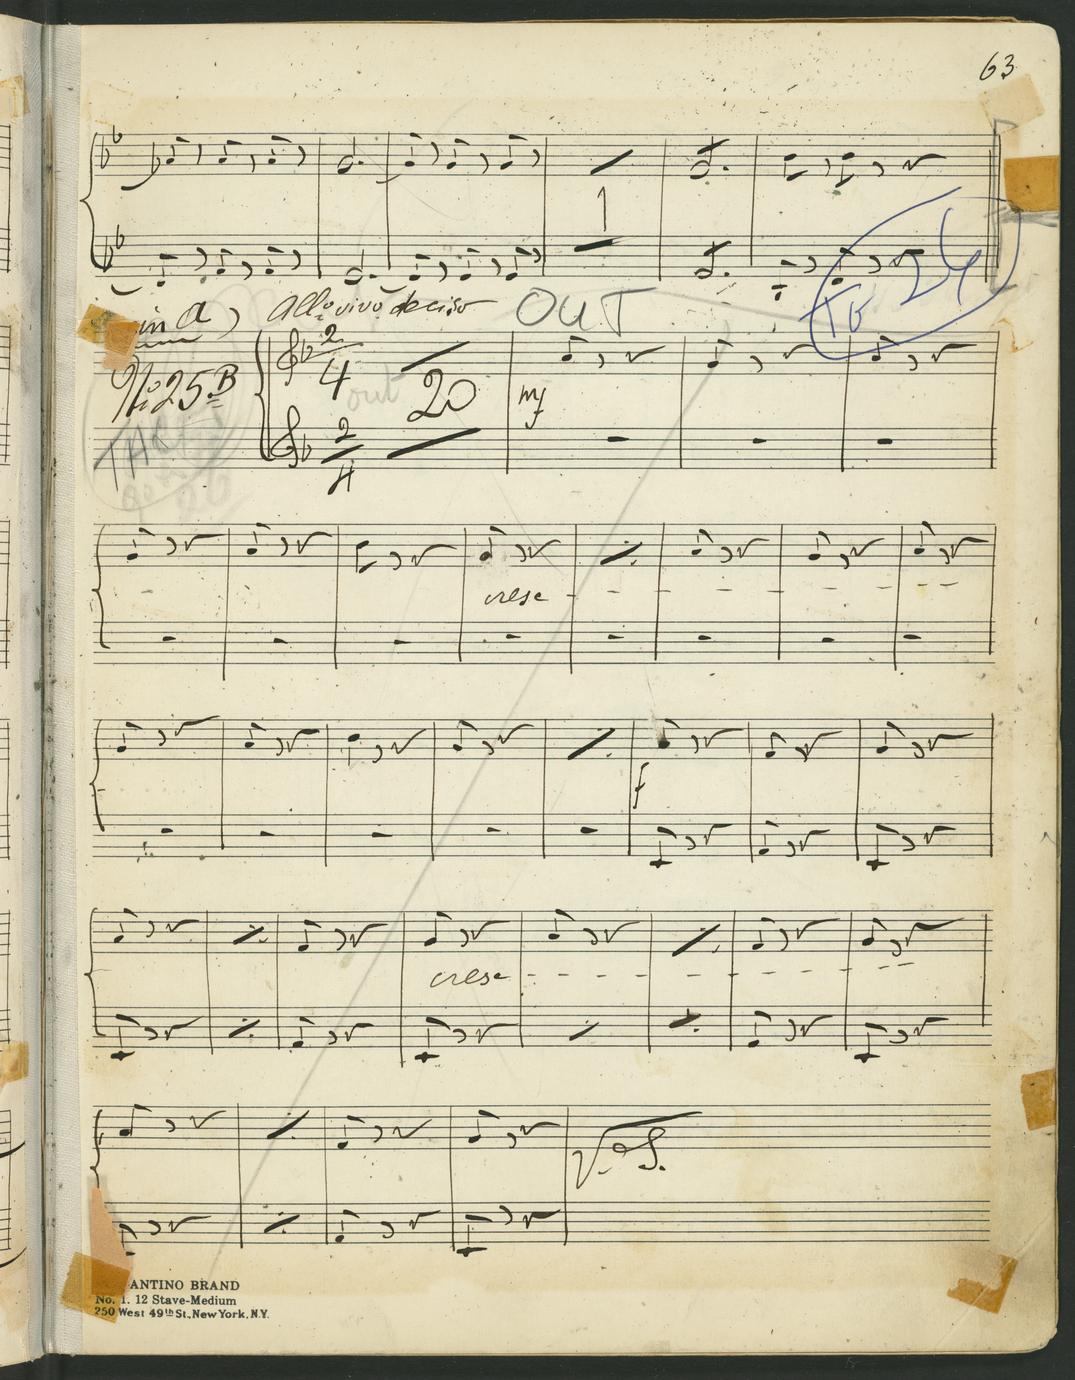 63
1
TO 24
in A) Allo vivo deciso OUT
No. 25 B
2 4 20 mf
out
2 4
TACET
go to 26
cresc
f
cresc
V. S.
ANTINO BRAND
No. 1. 12 Stave-Medium
250 West 49th St., New York, N.Y.